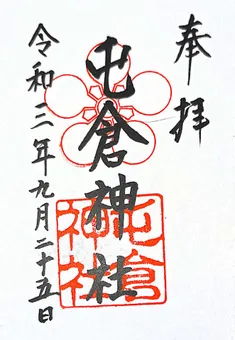 奉拝
屯倉神社
令和三年九月二十五日
屯倉
神社